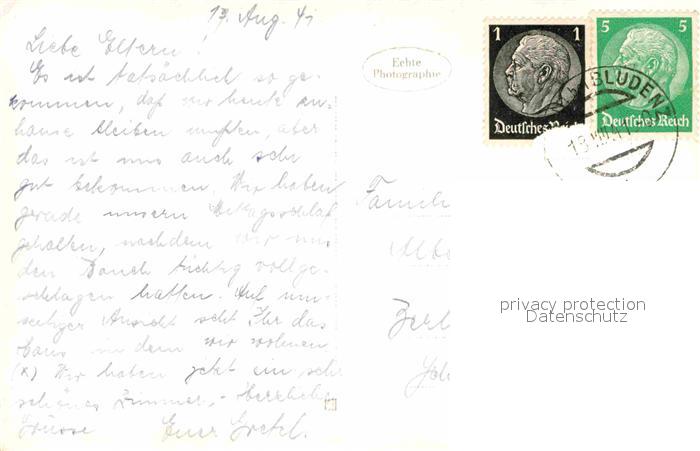 13. Aug. 41
Liebe Eltern!
Es ist tatsächlich so ge-
kommen, daß wir heute zu-
hause bleiben mußten, aber
das ist uns auch sehr
gut bekommen. Wir haben
gerade unseren Mittagsschlaf
gehalten, nachdem wir uns
den Bauch tüchtig vollge-
schlagen hatten. Auf um-
seitiger Ansicht seht Ihr das
Haus in dem wir wohnen
(x) Wir haben jetzt ein sehr
schönes Zimmer. Herzliche
Grüsse Eure Gretel.
Echte
Photographie
Famili
Albe
Berl
1
Deutsches Reich
5
Deutsches Reich
BLUDENZ
privacy protection
Datenschutz